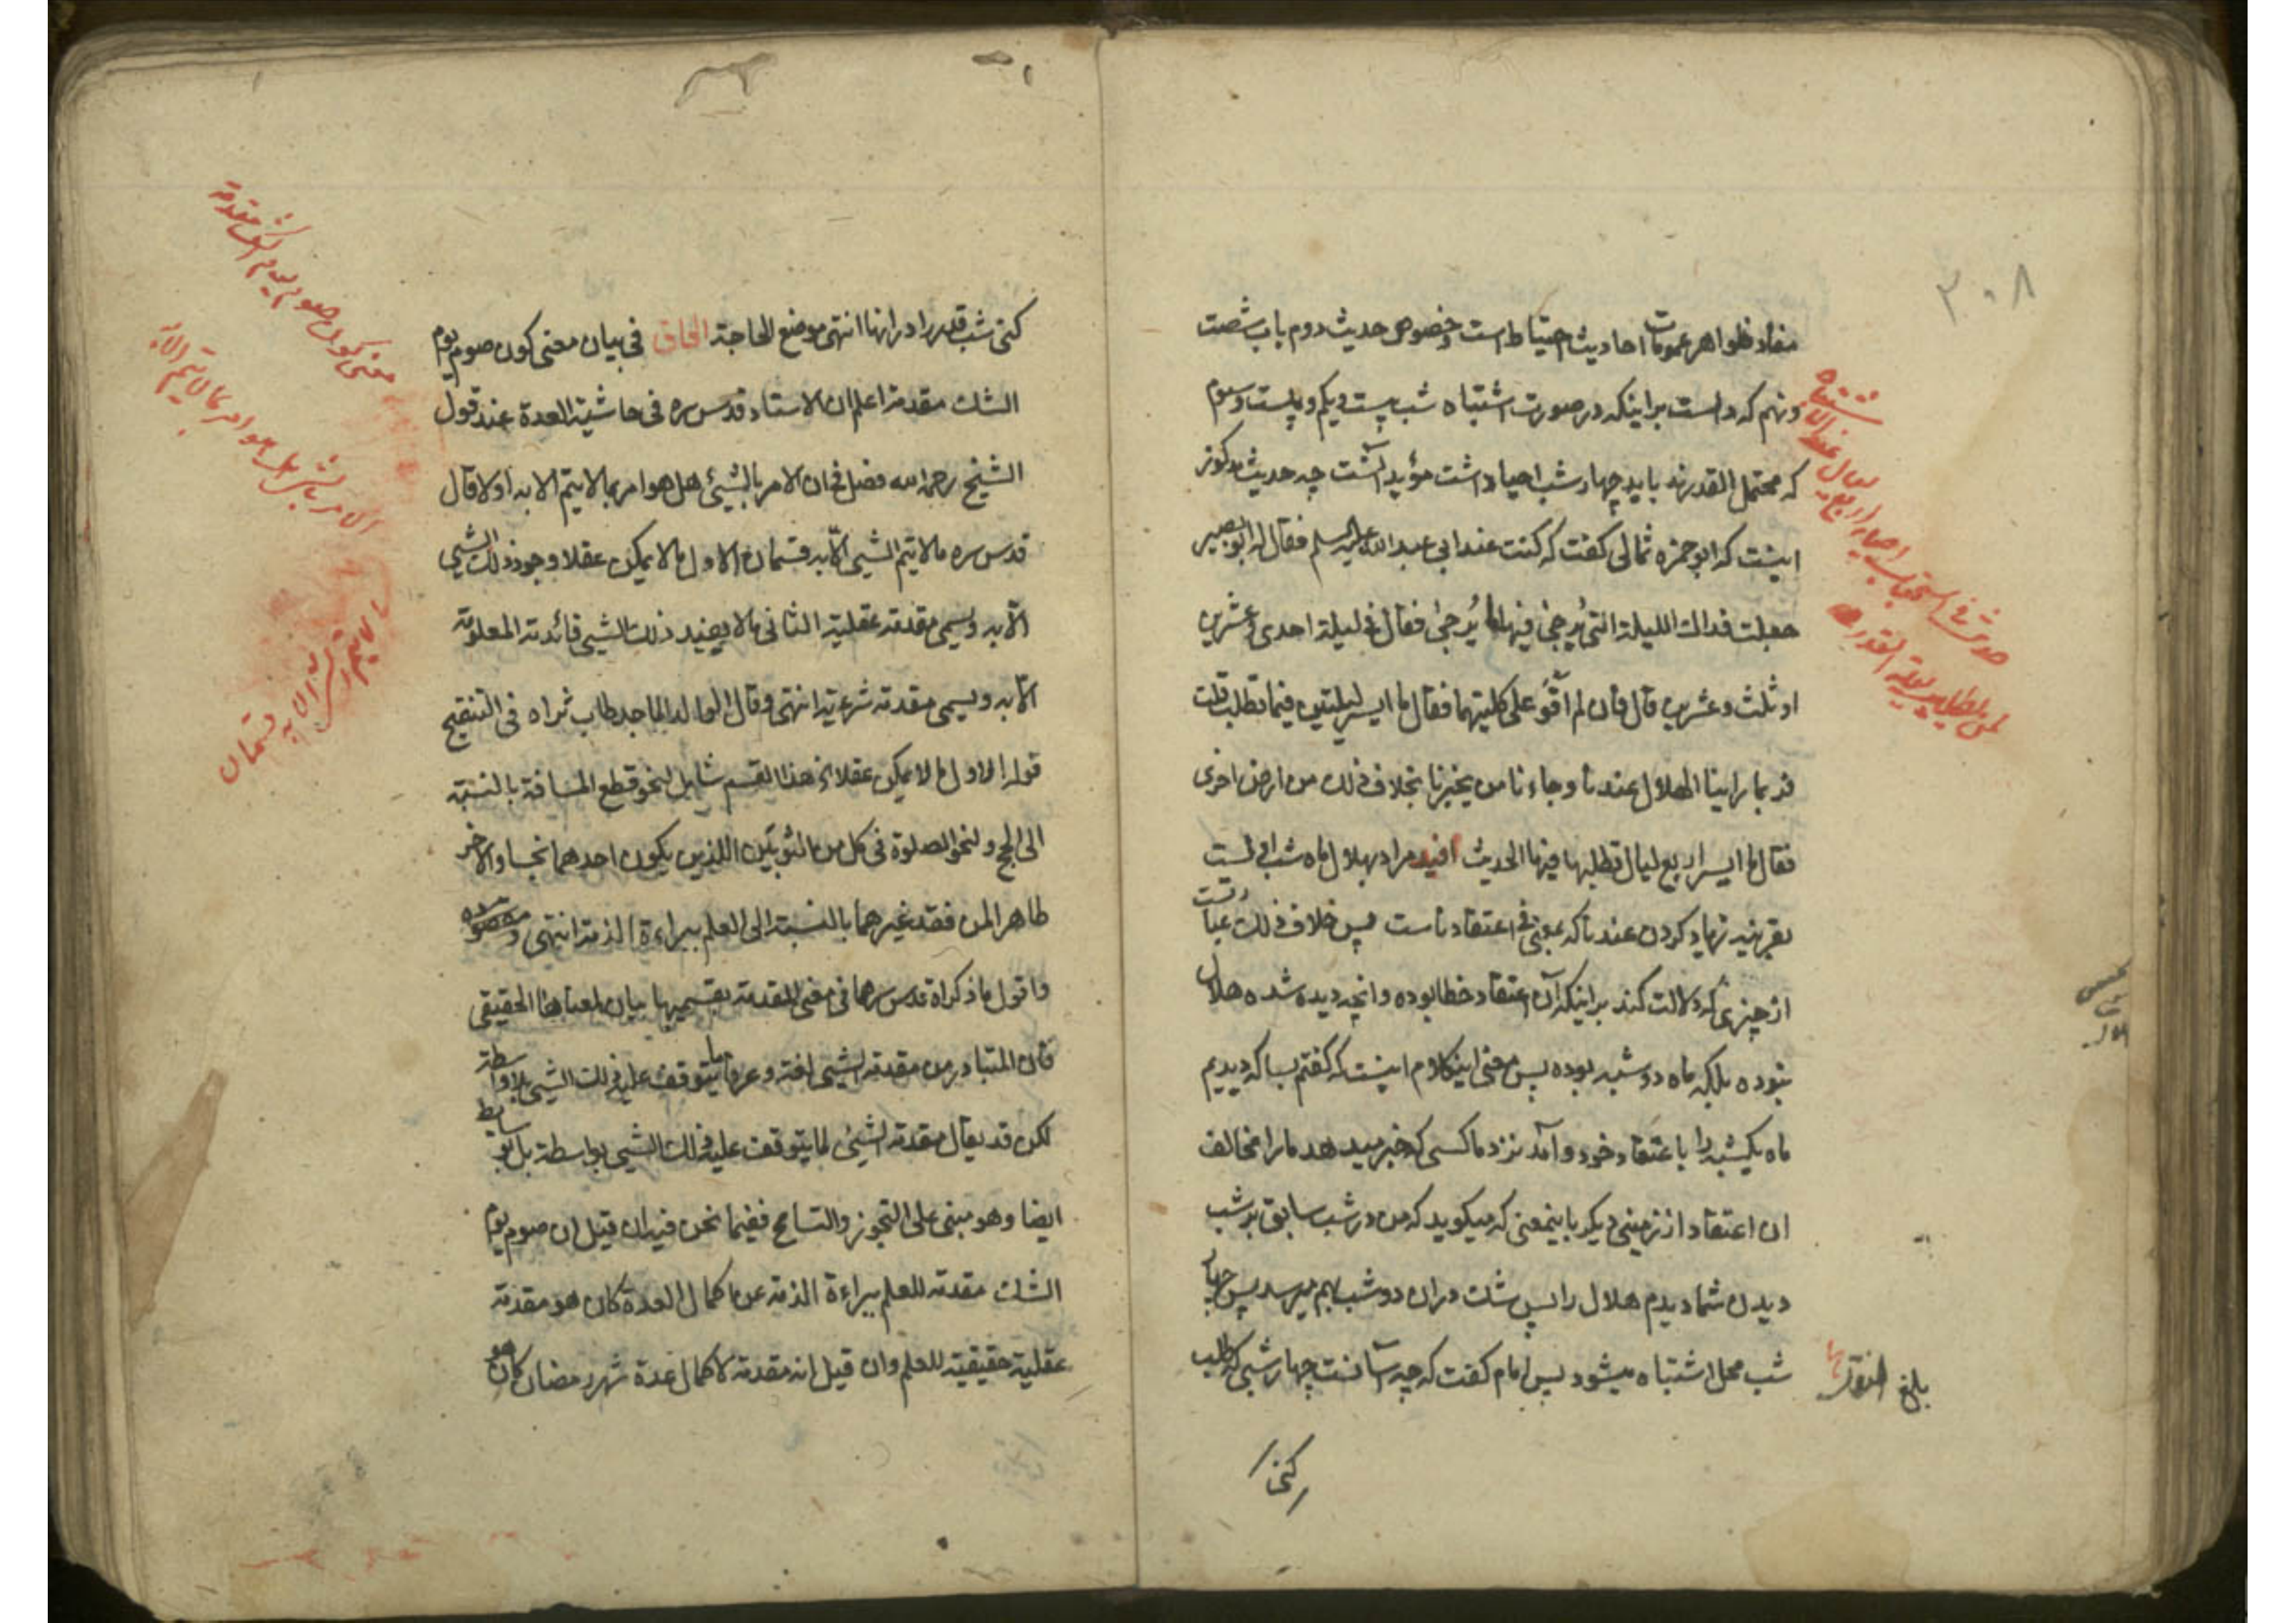 ۳۰۸
مفاد ظواهر عمومات احاديث احتياط است وخصوص حديث دوم باب شصت
ونهم كه دالست براينكه در صورت اشتباه شب بيست ويكم وبيست وسوم
كه محتمل القدرند بايد چهار شب احيا داشت مؤيد آنست چه حديث مذكور
اينست كه ابو حمزه ثمالى كفت كه كنت عند ابى عبدالله عليه السلم فقال له ابو بصير
جعلت فداك الليلة التى يُرجى فيها ما يُرجى فقال فى ليلة احدى وعشرين
او ثلث وعشرين قال فان لم اقوَ على كلتيهما فقال ما ايسر ليلتين فيما تطلب قلت
فربما راينا الهلال عندنا وجاءنا من يخبرنا بخلاف ذلك من ارض اخرى
فقال ما ايسر اربع ليال تطلبها فيها الحديث افيد مراد بهلال ماه شب اولست
بقرينه زياد كردن عندنا كه بمعنى فى اعتقادنا ست پس خلاف ذلك عبارتست
از چيزى كه دلالت كند براينكه آن اعتقاد خطا بوده وانچه ديده شده هلال
نبوده بلكه ماه دو شبه بوده پس معنى اينكلام اينست كه كفتم بسا كه ديديم
ماه يكشبه را باعتقاد خود وآمد نزد ما كسى كه خبر ميدهد ما را مخالف
ان اعتقاد از زمينى ديكر باينمعنى كه ميكويد كه من در شب سابق بر شب
ديدن شما ديدم هلال را پس شك دران دو شب بهم ميرسد پس چهار
شب محل اشتباه ميشود پس امام كفت كه چه آسانست چهار شبى كه طلب
كنى
حديث فى استحباب احياء اربع ليال عند الاشتباه
لمن يطلب ليلة القدر
بلغ
كنى شب قدر را در انها انتهى موضع الحاجة الحاق فى بيان معنى كون صوم يوم
الشك مقدمة اعلم ان الاستاد قدس سره فى حاشية العدة عند قول
الشيخ رحمه الله فصل فى ان الامر بالشيئ هل هو امر بما لا يتم الا به او لا قال
قدس سره مالا يتم الشيئ الّا به قسمان الاول مالا يمكن عقلا وجود ذلك الشيئ
الّا به ويسمى مقدمة عقلية الثانى مالا يفيد ذلك الشيئ فائدته المعلومة
الّا به ويسمى مقدمة شرعية انتهى وقال الوالد الماجد طاب ثراه فى التنقيح
قوله الاول مالا يمكن عقلا الخ هذا القسم شامل لنحو قطع المسافة بالنسبة
الى الحج ولنحو الصلوة فى كل من الثوبين اللذين يكون احدهما نجسا والاخر
طاهرا لمن فقد غيرهما بالنسبة الى العلم ببراءة الذمة انتهى
واقول ما ذكراه قدس سرهما فى معنى المقدمة بقسميها بيان لمعناها الحقيقى
فان المتبادر من مقدمة الشيئ لغة وعرفا ما يتوقف عليه ذلك الشيئ بلا واسطة
لكن قد يقال مقدمة الشيئ لما يتوقف عليه ذلك الشيئ بواسطة بل بوسايط
ايضا وهو مبنى على التجوز والتسامح ففيما نحن فيه ان قيل ان صوم يوم
الشك مقدمة للعلم ببراءة الذمة عن اكمال العدة كان هو مقدمة
عقلية حقيقية للعلم وان قيل انه مقدمة لاكمال عدة شهر رمضان كان هو
معنى كون صوم يوم الشك مقدمة
الامر بالشيئ هل هو امر بما لا يتم الا به
ما لا يتم الشيئ الا به قسمان